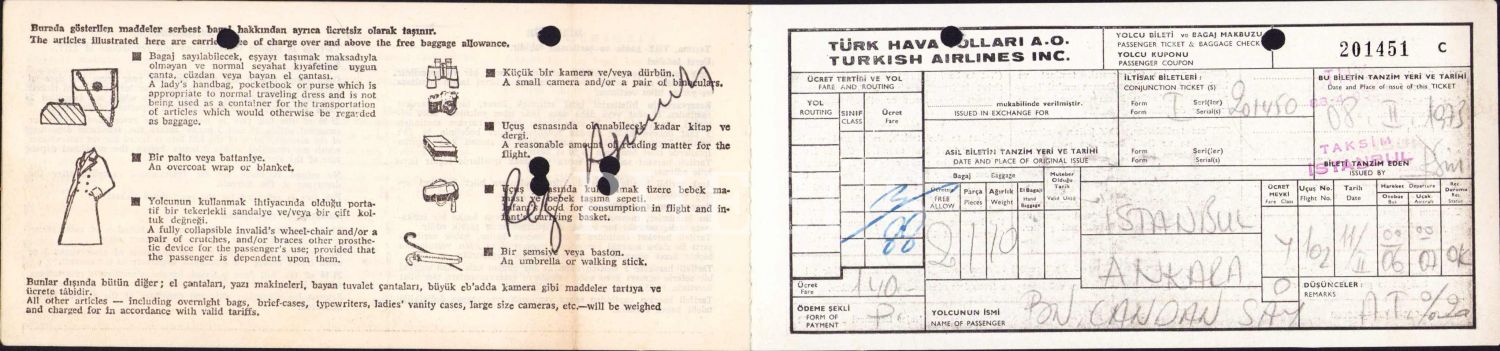 Burada gösterilen maddeler serbest bagaj hakkından ayrıca ücretsiz olarak taşınır.
The articles illustrated here are carried free of charge over and above the free baggage allowance.
Bagaj sayılabilecek, eşyayı taşımak maksadıyla
olmayan ve normal seyahat kıyafetine uygun
çanta, cüzdan veya bayan el çantası.
A lady's handbag, pocketbook or purse which is
appropriate to normal traveling dress and is not
being used as a container for the transportation
of articles which would otherwise be regarded
as baggage.
Bir palto veya battaniye.
An overcoat wrap or blanket.
Yolcunun kullanmak ihtiyacında olduğu porta-
tif bir tekerlekli sandalye ve/veya bir çift kol-
tuk değneği.
A fully collapsible invalid's wheel-chair and/or a
pair of crutches, and/or braces other prosthe-
tic device for the passenger's use; provided that
the passenger is dependent upon them.
Küçük bir kamera ve/veya dürbün.
A small camera and/or a pair of binoculars.
Uçuş esnasında okunabilecek kadar kitap ve
dergi.
A reasonable amount of reading matter for the
flight.
Uçuş esnasında kullanılmak üzere bebek ma-
ması ve bebek taşıma sepeti.
Infant's food for consumption in flight and in-
fant's carrying basket.
Bir şemsiye veya baston.
An umbrella or walking stick.
Bunlar dışında bütün diğer; el çantaları, yazı makineleri, bayan tuvalet çantaları, büyük eb'adda kamera gibi maddeler tartıya ve
ücrete tâbidir.
All other articles — including overnight bags, brief-cases, typewriters, ladies' vanity cases, large size cameras, etc.—will be weighed
and charged for in accordance with valid tariffs.
TÜRK HAVA YOLLARI A.O.
TURKISH AIRLINES INC.
YOLCU BİLETİ ve BAGAJ MAKBUZU
PASSENGER TICKET & BAGGAGE CHECK
YOLCU KUPONU
PASSENGER COUPON
201451 C
ÜCRET TERTİBİ VE YOL
FARE AND ROUTING
YOL
ROUTING
SINIF
CLASS
Ücret
Fare
mukabilinde verilmiştir.
ISSUED IN EXCHANGE FOR
İLTİSAK BİLETLERİ :
CONJUNCTION TICKET (S)
Form Seri(ler)
Form Serial(s)
201450
BU BİLETİN TANZİM YERİ VE TARİHİ
Date and Place of issue of this TICKET
08. II. 1973
TAKSİM
İSTANBUL
ASIL BİLETİN TANZİM YERİ VE TARİHİ
DATE AND PLACE OF ORIGINAL ISSUE
Form Seri(ler)
Form Serial(s)
BİLETİ TANZİM EDEN
ISSUED BY
Bagaj Baggage
Ücretsiz
FREE
ALLOW
Parça
Pieces
Ağırlık
Weight
El Bagajı
Hand
Baggage
Muteber
Olduğu
Tarih
Valid Until
ÜCRET
MEVKİ
Fare Class
Uçuş No.
Flight No.
Tarih
Date
Hareket Departure
Otobüs
Bus
Uçak
Aircraft
Rez.
Durumu
Res.
Status
2 1 10
İSTANBUL
ANKARA
Y 102 11/II 06 00 07 00 OK
Ücret
Fare
140.-
DÜŞÜNCELER :
REMARKS
ÖDEME ŞEKLİ
FORM OF
PAYMENT
YOLCUNUN İSMİ
NAME OF PASSENGER
BN CANDAN SAY